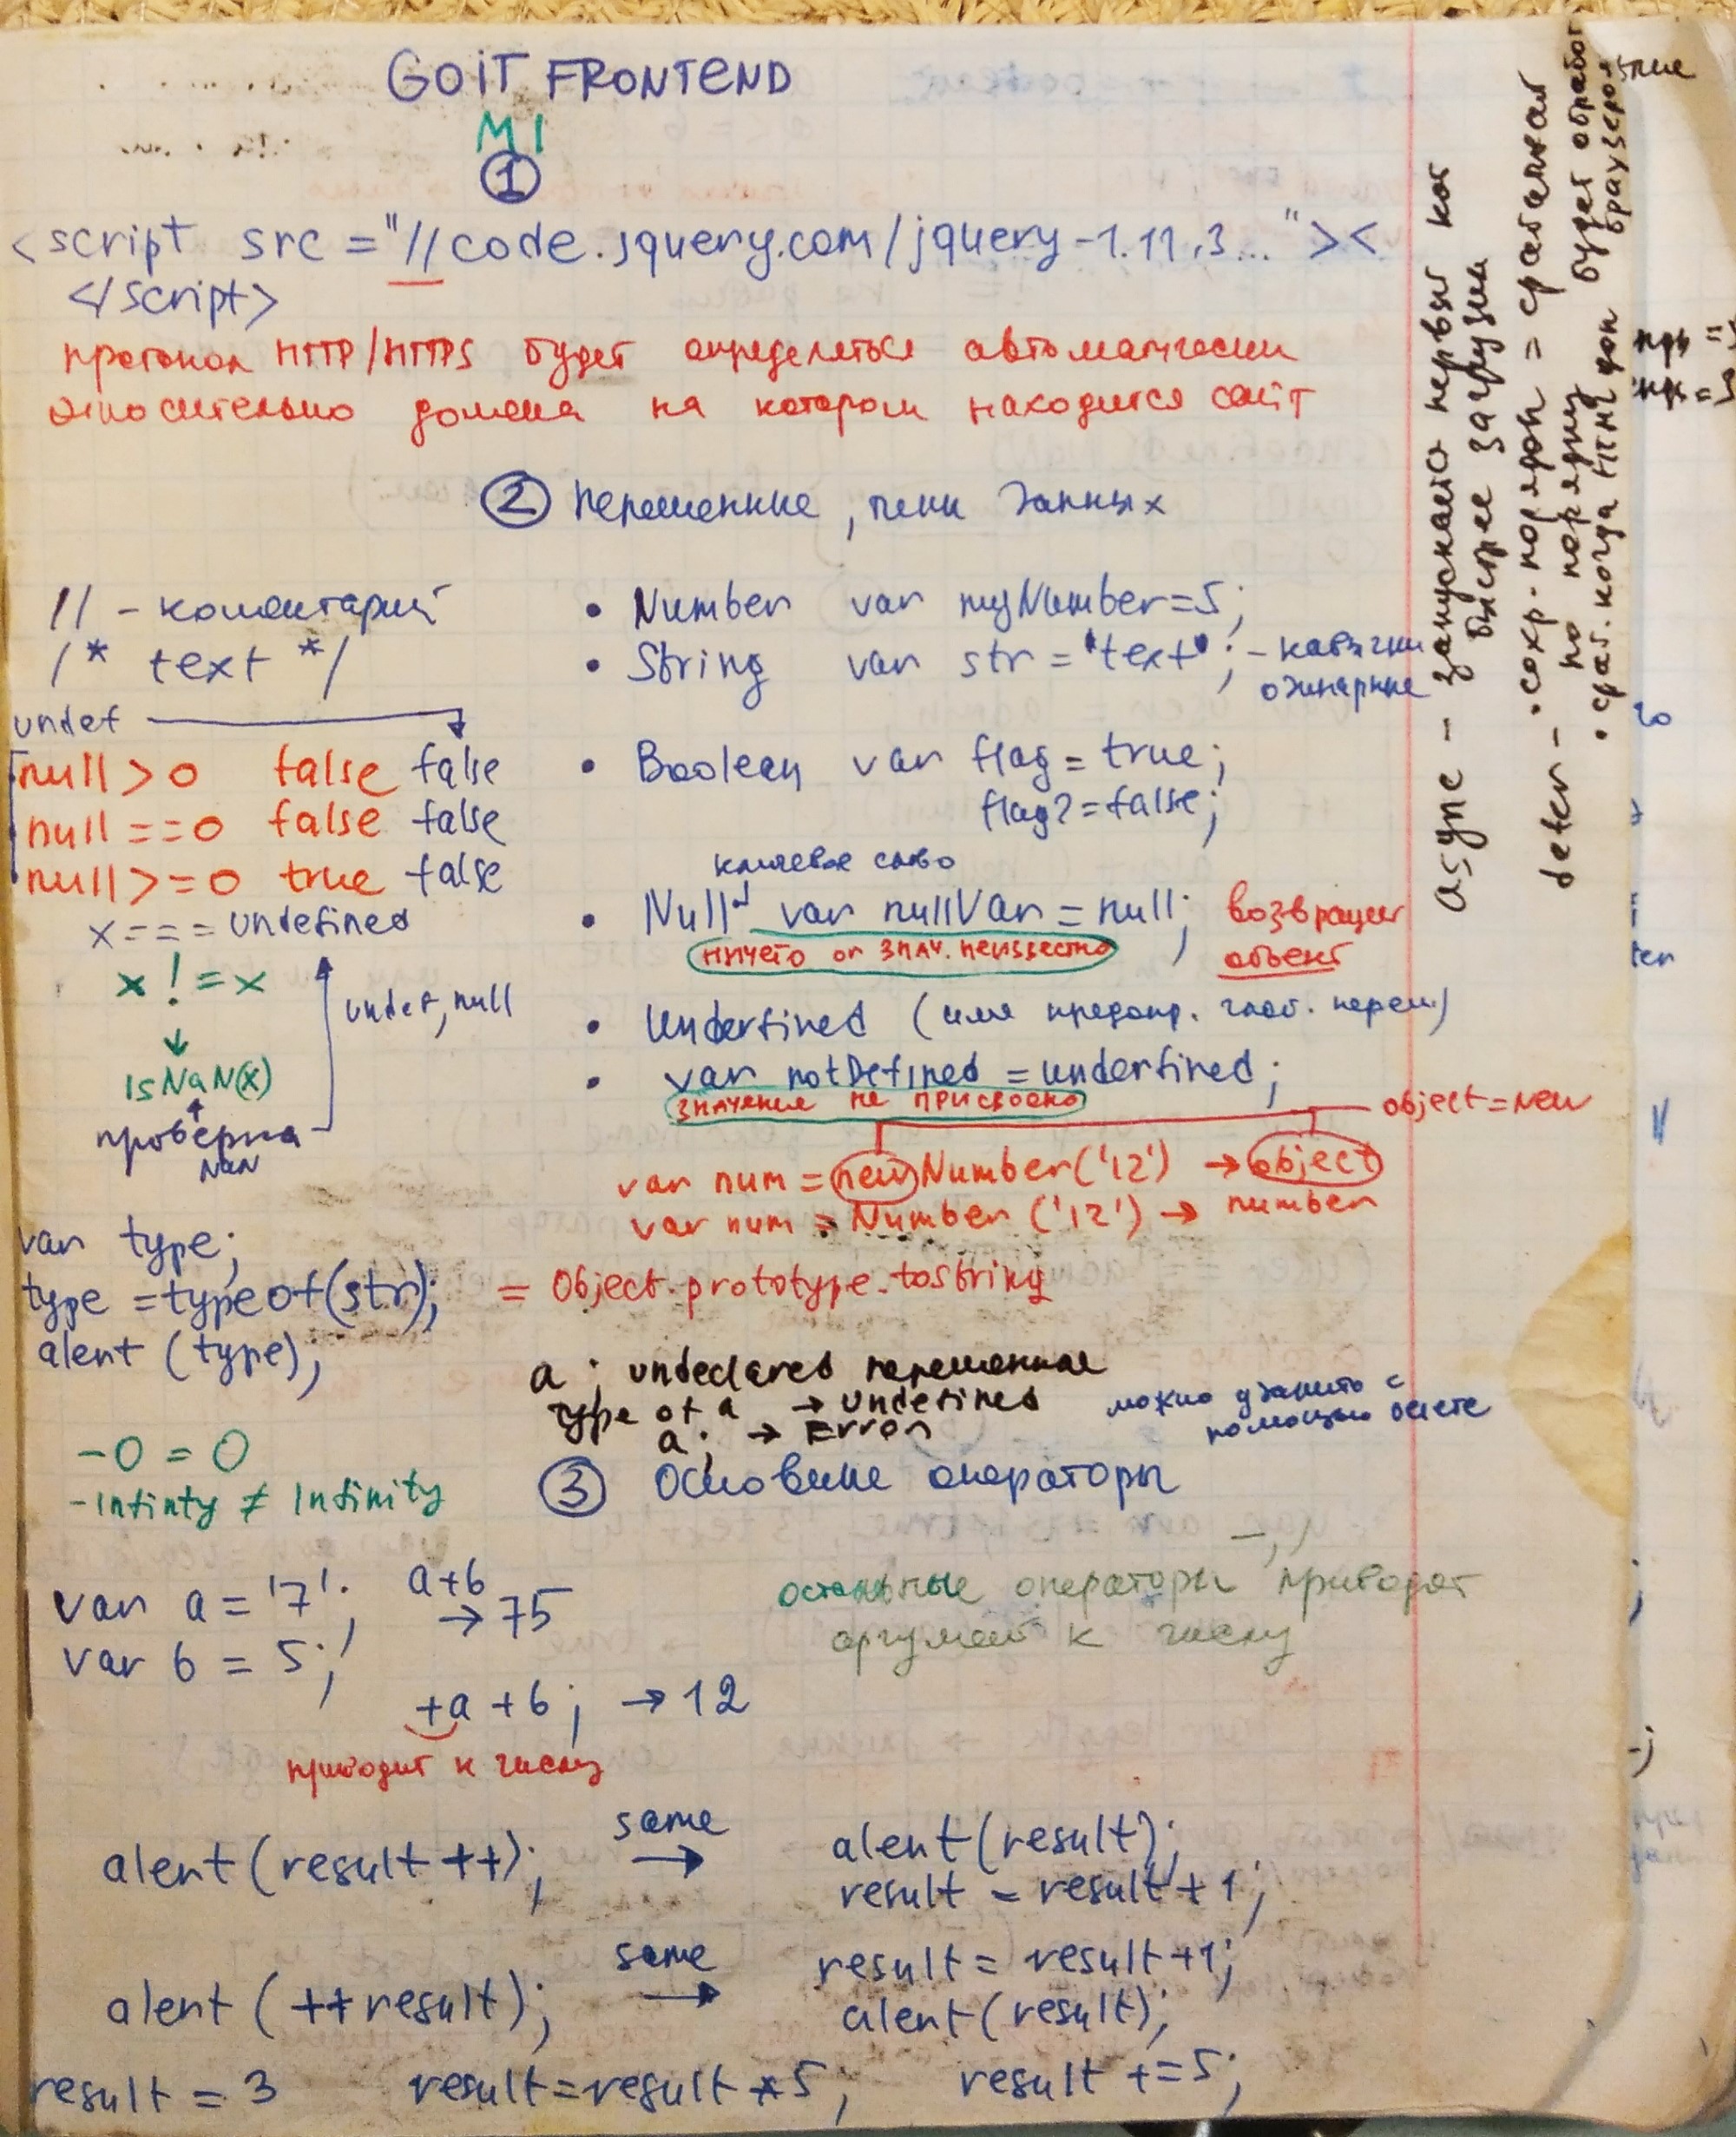 GOIT FRONTEND
M1
1
<script src="//code.jquery.com/jquery-1.11.3..."><
</script>
протокол HTTP/HTTPS будет определяться автоматически
относительно домена на котором находится сайт
2 переменные, типы данных
// - коментарий
/* text */
undef
null > 0 false false
null == 0 false false
null >= 0 true false
x === undefined
x != x
undef, null
isNaN(x)
проверка
NaN
• Number var myNumber=5;
• String var str = 'text'; - кавычки
одинарные
• Boolean var flag = true;
flag2=false;
ключевое слово
• Null var nullVar = null; возвращает
объект
ничего or знач. неизвестно
• Underfined (имя предопр. глоб. перем.)
• var notDefined = underfined;
значение не присвоено
object = new
var num = new Number('12') → object
var num = Number('12') → number
var type;
type = typeof(str); = Object.prototype.tostring
alert (type);
a ; undeclared переменные
type of a → undefined
a; → Error
можно удалить с
помощью delete
-0 = 0
-Infinty ≠ Infinity
3 Основные операторы
var a = '7'; a+b → 75
var b = 5;
+a + b; → 12
приводит к числу
остальные операторы приводят
аргумент к числу
alert(result ++); same → alert(result);
result = result + 1;
alert (++result); same → result = result+1;
alert(result);
result = 3 result=result * 5; result +=5;
async - запускает первый кот
быстрее загрузил
defer - • сохр. порядок = сработает
по порядку
• сраб. когда HTML док будет обработ
браузером